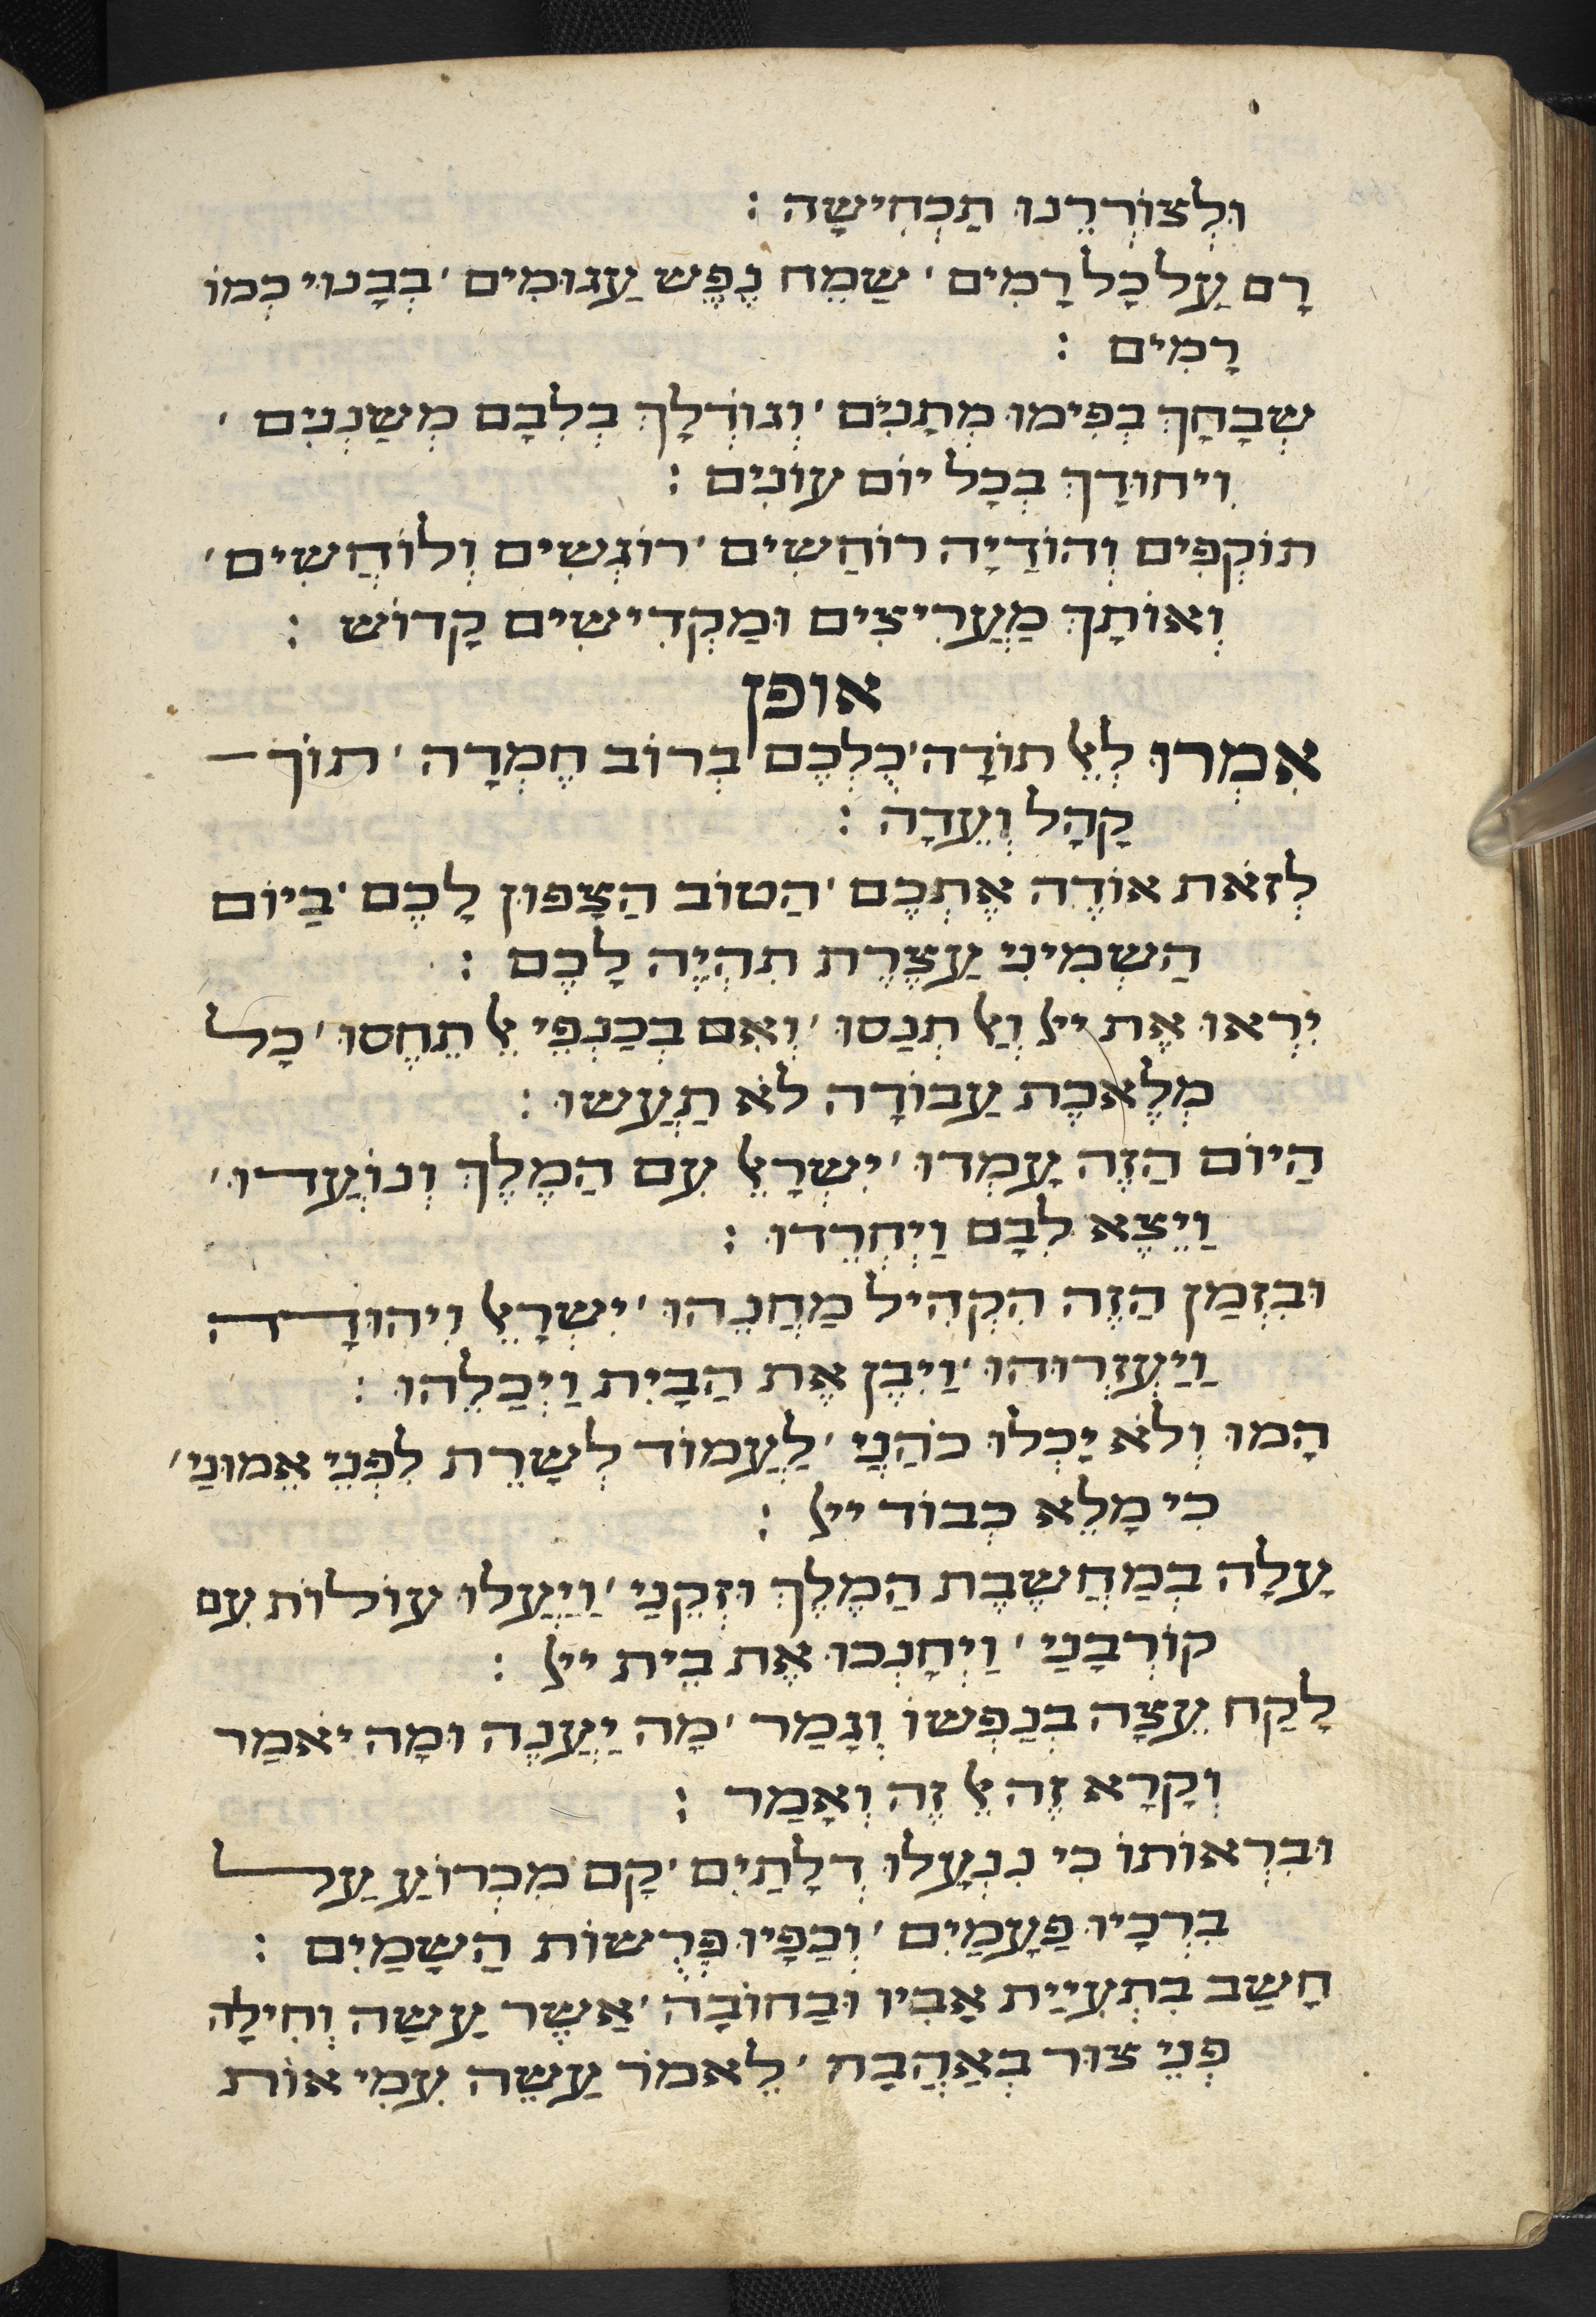 וּלְצוֹרְרֵנוּ תַכְחִישָׁה :
רָם עַל כָּל רָמִים ׳ שַׂמֵּח נֶפֶשׁ עֲגוּמִים ׳ בְּבָנוּי כְמוֹ
רָמִים :
שְׁבָחָךְ בְּפִימוֹ מְתַנִּים ׳ וְגוֹדְלָךְ בְּלִבָּם מְשַׁנְּנִים ׳
וִיחוּדָךְ בְּכָל יוֹם עוֹנִים :
תוֹקְפִים וְהוֹדַיָה רוֹחֲשִׁים ׳ רוֹגְשִׁים וְלוֹחֲשִׁים ׳
וְאוֹתָךְ מַעֲרִיצִים וּמַקְדִישִׁים קָדוֹשׁ :
אופן
אִמְרוּ לְאֵל תּוֹדָה ׳ כֻּלְּכֶם בְּרוֹב חֶמְדָּה ׳ תּוֹךְ
קָהָל וְעֵדָה :
לְזֹאת אוֹדֶה אֶתְכֶם ׳ הַטּוֹב הַצָּפוּן לָכֶם ׳ בַּיוֹם
הַשְּׁמִינִי עֲצֶרֶת תִּהְיֶה לָכֶם :
יִרְאוּ אֶת ייל וְאַל תְּנַסּוּ ׳ וְאִם בְּכַנְפֵי אֵל תֵּחֱסוּ ׳ כָּל
מְלֶאכֶת עֲבוֹדָה לֹא תַעֲשׂוּ :
הַיּוֹם הַזֶּה עָמְדוּ ׳ יִשְׂרָאֵל עִם הַמֶּלֶךְ וְנוֹעֲדוּ ׳
וַיֵּצֵא לִבָּם וַיֶּחְרְדוּ :
וּבַזְּמַן הַזֶּה הִקְהִיל מַחֲנֵהוּ ׳ יִשְׂרָאֵל וִיהוּדָה
וַיַּעְזְרוּהוּ ׳ וַיִּבֶן אֶת הַבַּיִת וַיְכַלֵּהוּ :
הָמוּ וְלֹא יָכְלוּ כֹּהֲנַי ׳ לַעֲמוֹד לְשָׁרֵת לִפְנֵי אֱמוּנַי ׳
כִּי מָלֵא כְּבוֹד ייל :
עָלָה בְמַחֲשֶׁבֶת הַמֶּלֶךְ וּזְקֵנַי ׳ וַיַּעֲלוּ עוֹלוֹת עִם
קוֹרְבָּנַי ׳ וַיְחָנְכוּ אֶת בֵּית ייל :
לָקַח עֵצָה בְנַפְשׁוֹ וְגָמַר ׳ מָה יַעֲנֶה וּמָה יֹאמַר
וְקָרָא זֶה אֶל זֶה וְאָמַר :
וּבִרְאוֹתוֹ כִּי נִנְעֲלוּ דְלָתַיִם ׳ קָם מִכְּרוֹעַ עַל
בִּרְכָּיו פַּעֲמַיִם ׳ וְכַפָּיו פְּרֻשׂוֹת הַשָּׁמַיִם :
חָשַׁב בִּתְעִיַּת אָבִיו וּבַחוֹבָה ׳ אֲשֶׁר עָשָׂה וְחִילָּה
פְּנֵי צוּר בְּאַהֲבָה ׳ לֵאמֹר עֲשֵׂה עִמִּי אוֹת